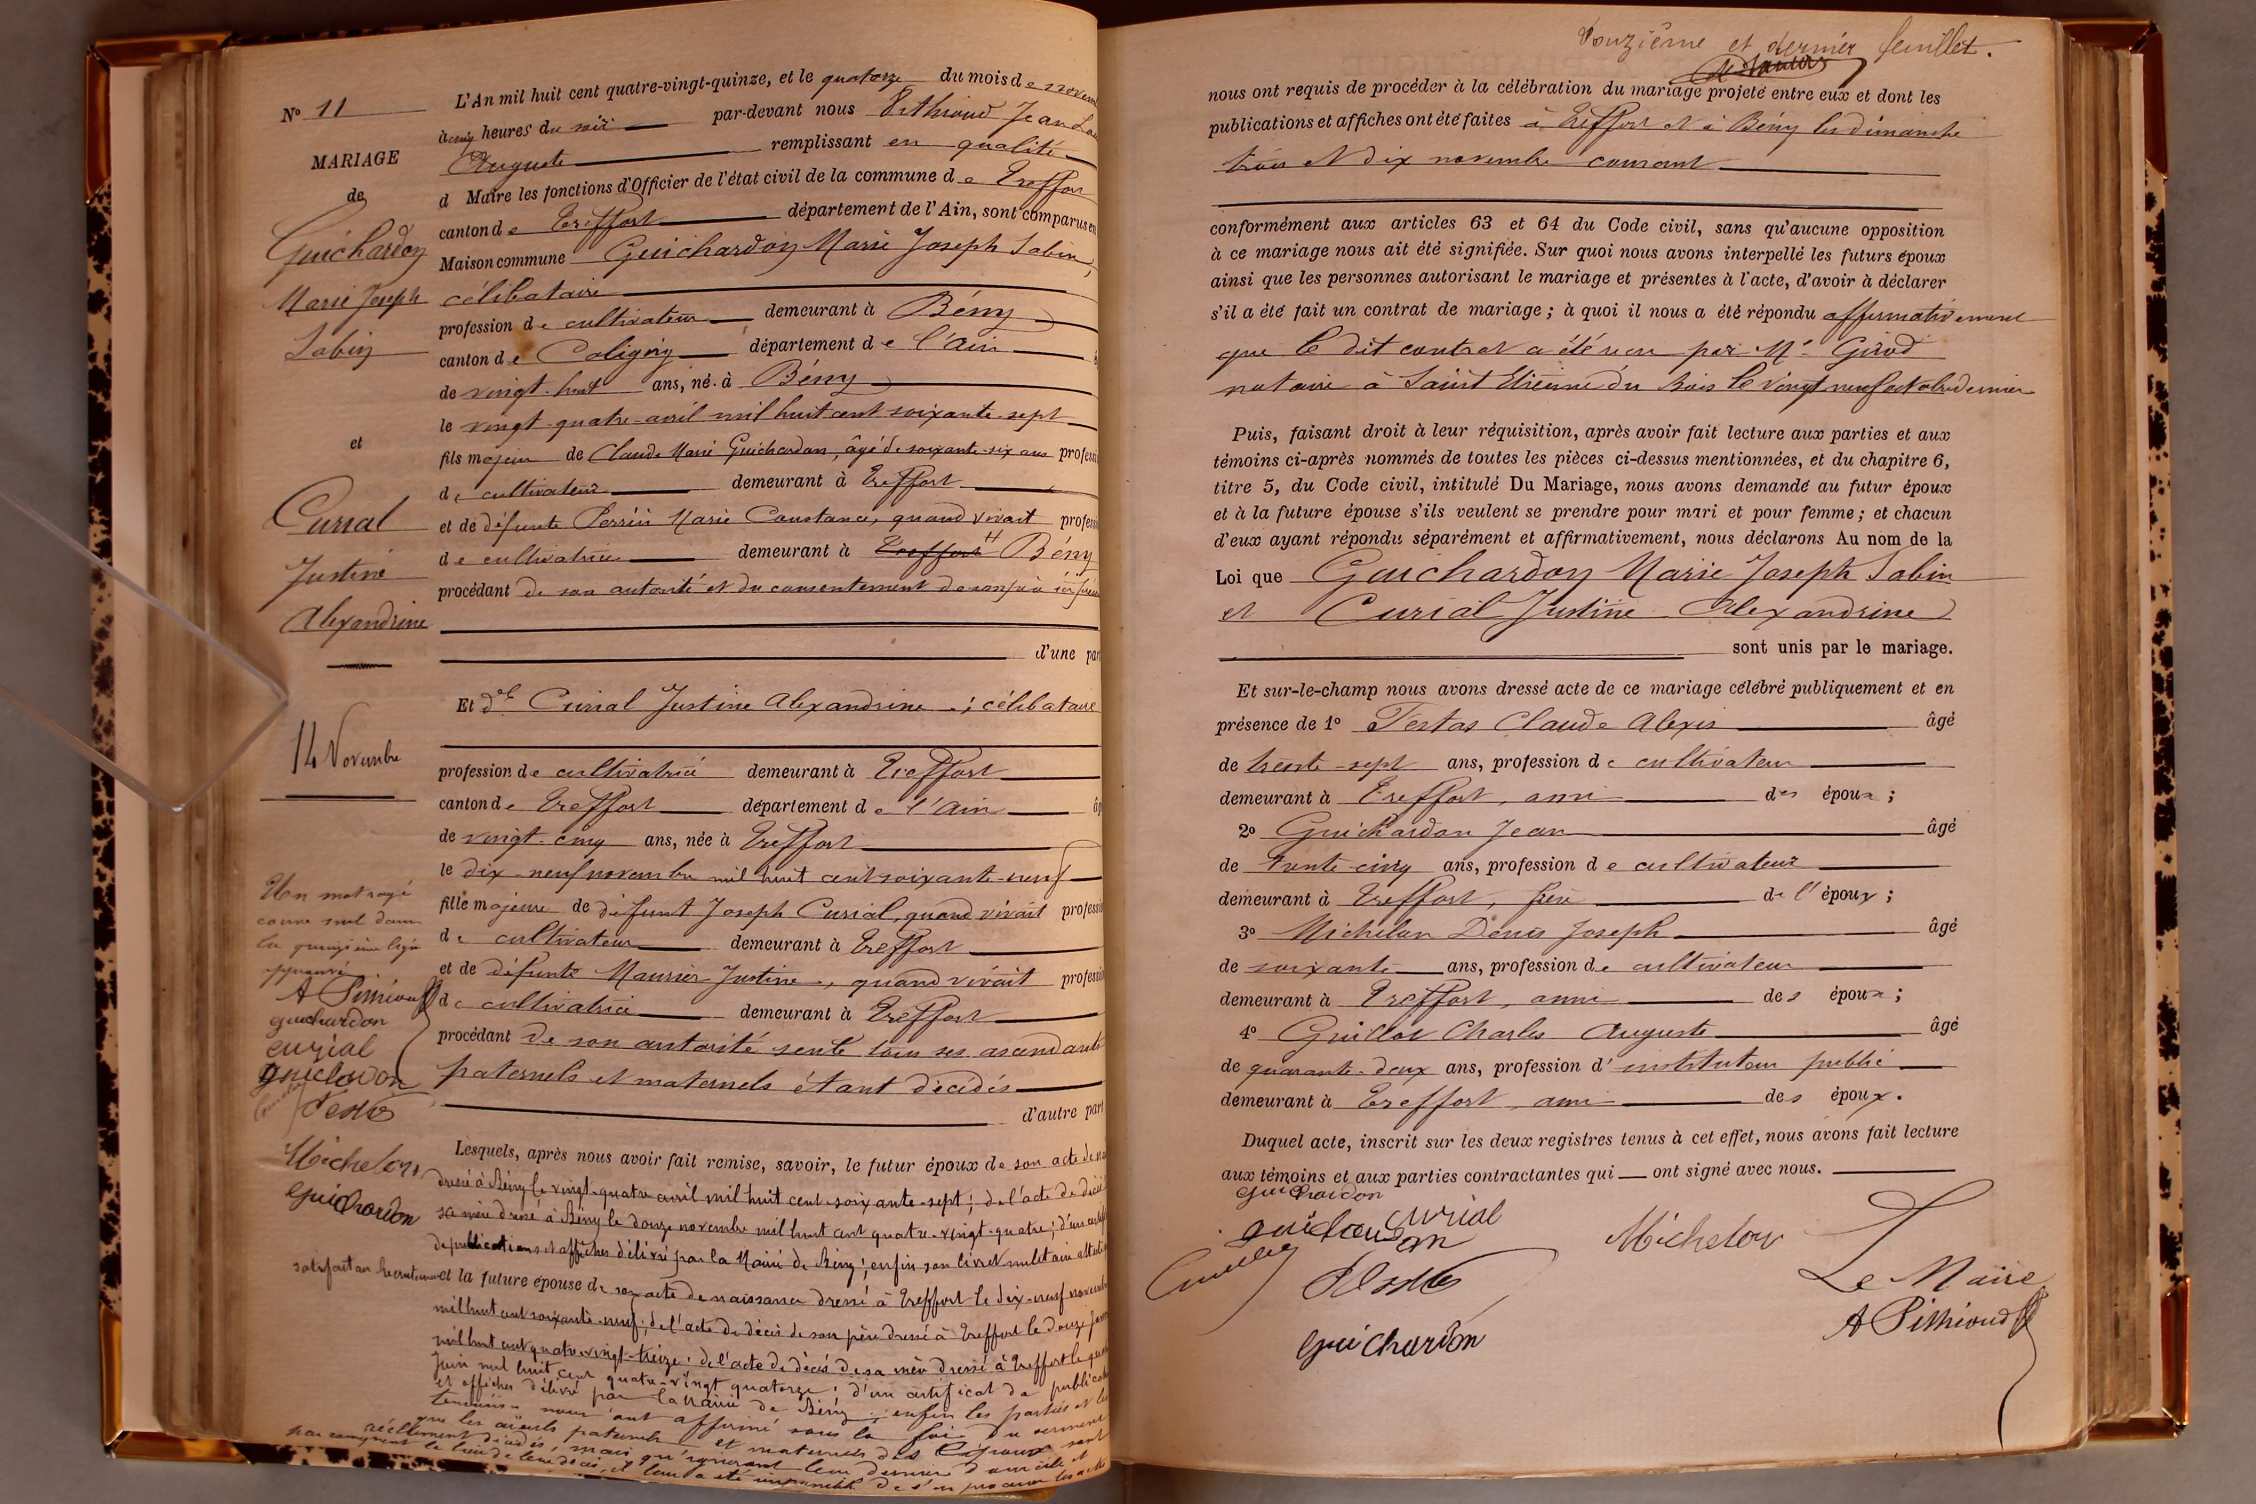 No 11
MARIAGE
de
Guichardon
Marie Joseph
Sabin
et
Curial
Justine
Alexandrine
14 Novembre
Un mot rayé
comme nul dans
la quinzième ligne
approuvé
A Pithioud
guichardon
curial
guichardon
Testas
Michelon
Guichardon
L'An mil huit cent quatre-vingt-quinze, et le quatorze du mois de novem
à cinq heures du soir par-devant nous Pithioud Jean
Auguste remplissant en qualité
d Maire les fonctions d'Officier de l'état civil de la commune de Treffort
canton de Treffort département de l'Ain, sont comparus en
Maison commune Guichardon Marie Joseph Sabin,
célibataire
profession de cultivateur demeurant à Bény
canton de Coligny département de l'Ain
de vingt-huit ans, né à Bény
le vingt-quatre avril mil huit cent soixante-sept
fils majeur de Claude Marie Guichardon, âgé de soixante-six ans profess
de cultivateur demeurant à Treffort
et de défunte Perrin Marie Constance, quand vivait profess
de cultivatrice demeurant à Treffort Bény
procédant de son autorité et du consentement de son père
d'une part
Et dlle Curial Justine Alexandrine ; célibataire
profession de cultivatrice demeurant à Treffort
canton de Treffort département de l'Ain
de vingt-cinq ans, née à Treffort
le dix-neuf novembre mil huit cent soixante-neuf
fille majeure de défunt Joseph Curial, quand vivait professi
de cultivateur demeurant à Treffort
et de défunte Maurier Justine, quand vivait professi
de cultivatrice demeurant à Treffort
procédant de son autorité seule tous ses ascendants
paternels et maternels étant décédés
d'autre part
Lesquels, après nous avoir fait remise, savoir, le futur époux de son acte de
dressé à Bény le vingt-quatre avril mil huit cent soixante-sept ; de l'acte de décès
sa mère dressé à Bény le douze novembre mil huit cent quatre-vingt-quatre ; d'un certif
de publications et affiches délivré par la Mairie de Bény ; enfin son livret militaire
satisfait au recrutement et la future épouse de son acte de naissance dressé à Treffort le dix-neuf novembre
mil huit cent soixante-neuf ; de l'acte de décès de son père dressé à Treffort le douze
mil huit cent quatre-vingt-treize : de l'acte de décès de sa mère dressé à Treffort le
Juin mil huit cent quatre-vingt quatorze ; d'un certificat de publication
et affiches délivré par la Mairie de Bény ; enfin les parties et les
témoins nous ont affirmé sous la foi du serment
que les aïeuls paternels et maternels des époux sont
réellement décédés, mais qu'ignorant leur dernier domicile et
par conséquent le lieu de leur décès, il leur a été impossible de s'en procurer les actes
Douzième et dernier feuillet.
nous ont requis de procéder à la célébration du mariage projeté entre eux et dont les
publications et affiches ont été faites à Treffort et à Bény les dimanche
trois et dix novembre courant
conformément aux articles 63 et 64 du Code civil, sans qu'aucune opposition
à ce mariage nous ait été signifiée. Sur quoi nous avons interpellé les futurs époux
ainsi que les personnes autorisant le mariage et présentes à l'acte, d'avoir à déclarer
s'il a été fait un contrat de mariage ; à quoi il nous a été répondu affirmativement
que le dit contrat a été reçu par Me Girod
notaire à Saint Etienne du Bois le vingt neuf octobre dernier
Puis, faisant droit à leur réquisition, après avoir fait lecture aux parties et aux
témoins ci-après nommés de toutes les pièces ci-dessus mentionnées, et du chapitre 6,
titre 5, du Code civil, intitulé Du Mariage, nous avons demandé au futur époux
et à la future épouse s'ils veulent se prendre pour mari et pour femme ; et chacun
d'eux ayant répondu séparément et affirmativement, nous déclarons Au nom de la
Loi que Guichardon Marie Joseph Sabin
et Curial Justine Alexandrine
sont unis par le mariage.
Et sur-le-champ nous avons dressé acte de ce mariage célébré publiquement et en
présence de 1o Testas Claude Alexis âgé
de trente-sept ans, profession de cultivateur
demeurant à Treffort, ami des époux ;
2o Guichardon Jean âgé
de trente-cinq ans, profession de cultivateur
demeurant à Treffort, frère de l'époux ;
3o Michelon Denis Joseph âgé
de soixante ans, profession de cultivateur
demeurant à Treffort, ami des époux ;
4o Guillot Charles Auguste âgé
de quarante-deux ans, profession d'instituteur public
demeurant à Treffort, ami des époux.
Duquel acte, inscrit sur les deux registres tenus à cet effet, nous avons fait lecture
aux témoins et aux parties contractantes qui ont signé avec nous.
guichardon
curial
guichardon
Michelon
Testas
Le Maire
A Pithioud
Guichardon